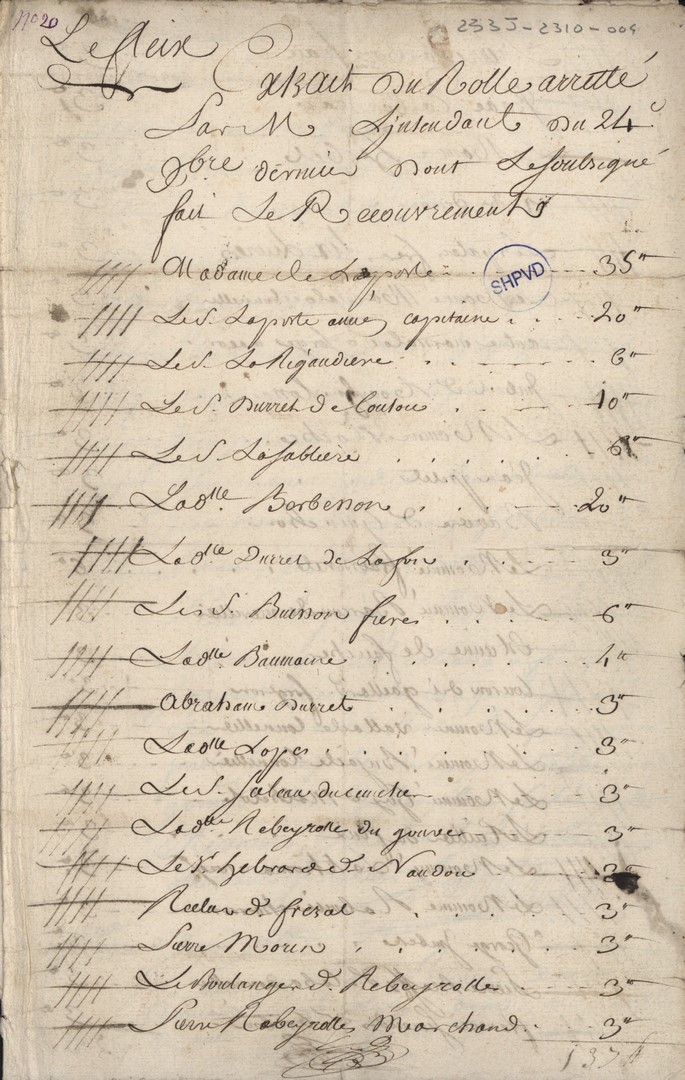 N° 20
233J-2310-009
Le fleix Extrait Du Rolle arretté
Par M L'jntendant Du 24e
9bre dernier dont Le soubsigné
fait Le Recouvrement
Madame De Laporte 35"
SHPVD
Le S. Laporte ainé capitaine 20"
Le S. La Rigaudiere 6"
Le S. Durret De 10"
Le S. Lasabliere 6"
La dlle Barbesson 20"
La dlle Durret de Lafon 3"
Les S. Buisson freres 6"
La dlle Baumaine 4"
Abraham Durret 3"
La dlle Lopes 3"
Le S. 3"
La dlle Rebeyrolle du 3"
Le Sr hebrard d. Naudou
d. 3"
Pierre Morin 3"
Le Boulanger d. Rebeyrolle 3"
Pierre Rebeyrolle Marchand 3"
137"